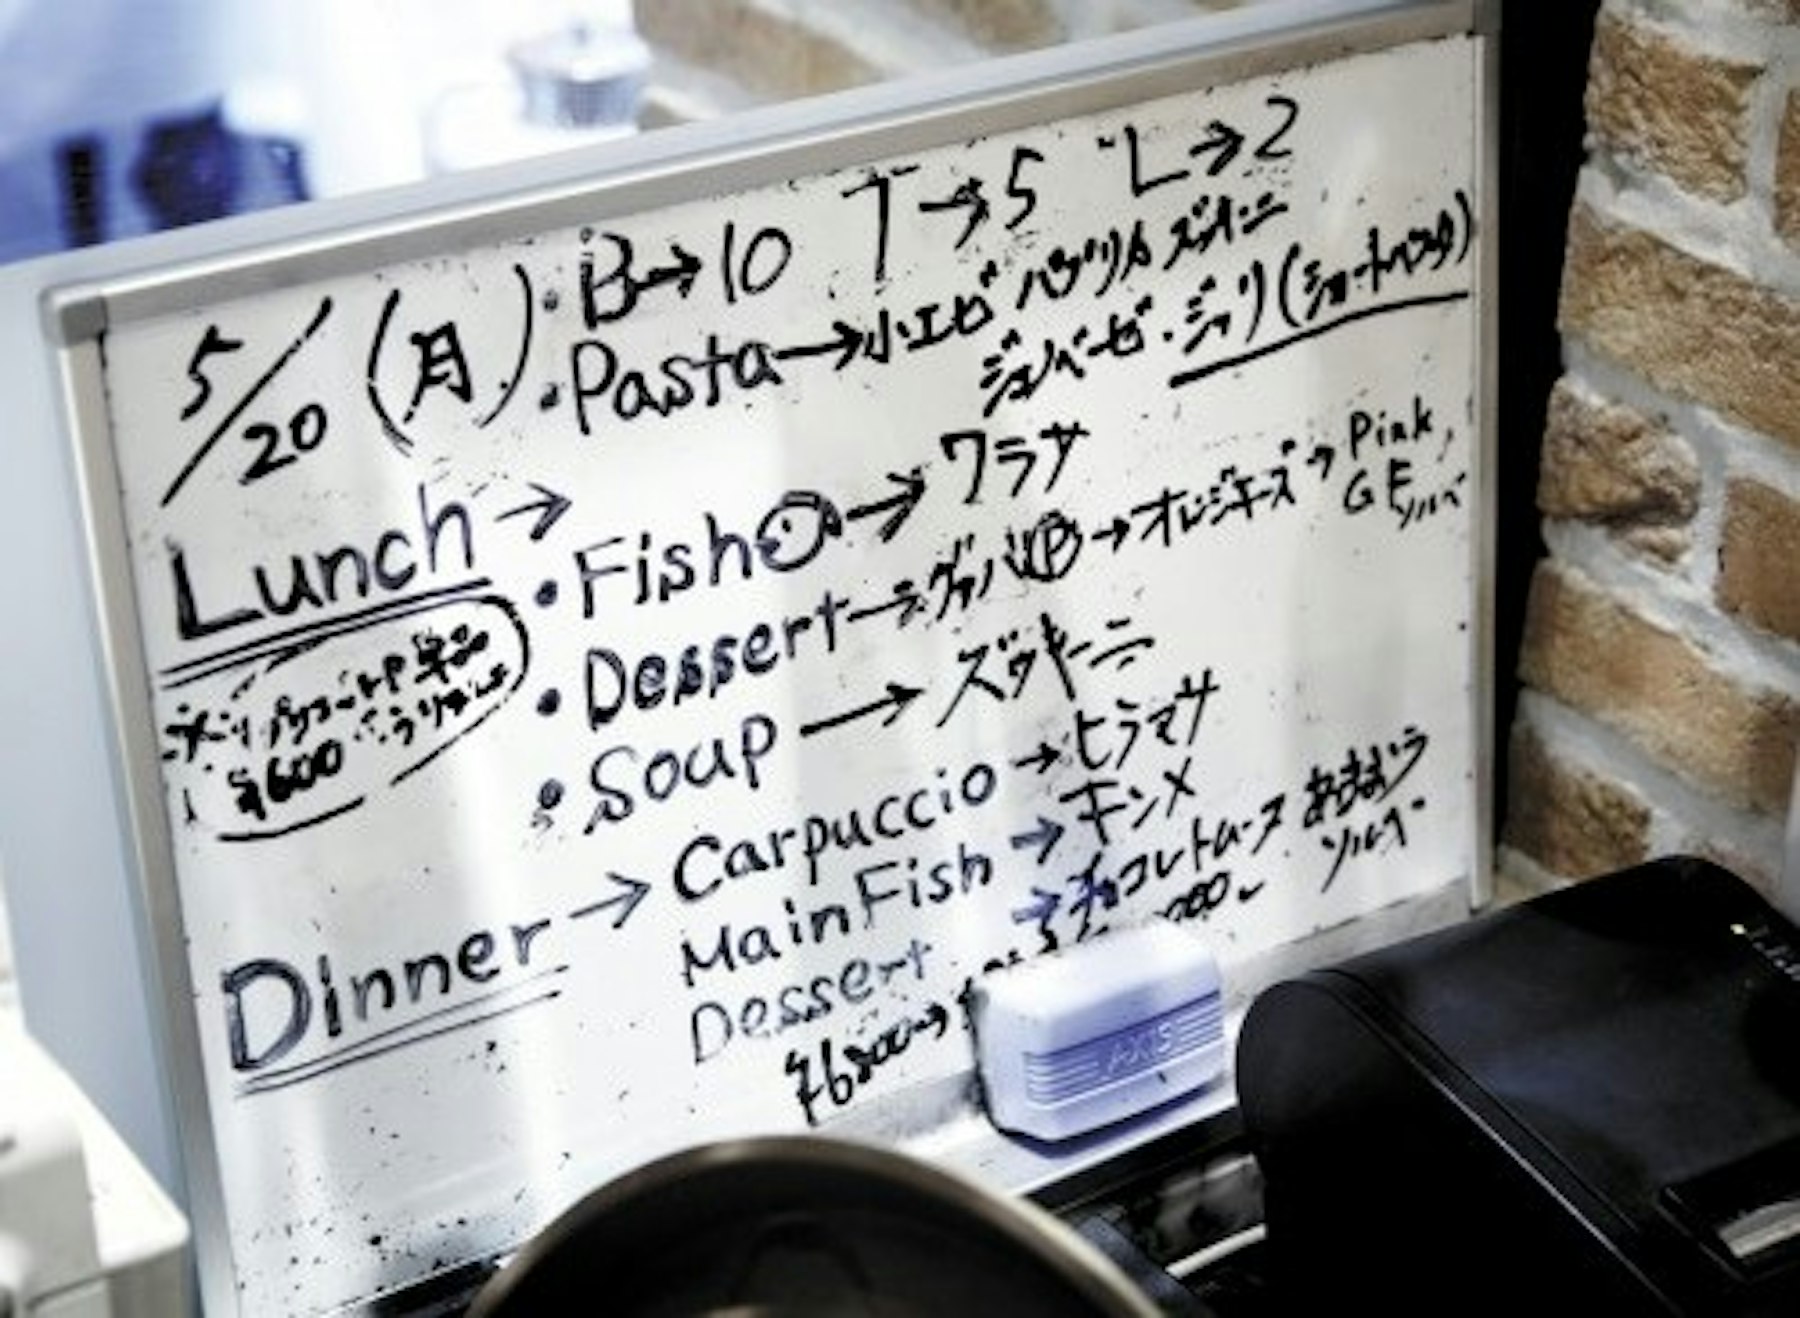 5/20 (月)
・B→10 T→5 L→2
・Pasta→小エビ パプリカ ズッキーニ
ジェノベーゼ・ジェリ(ショートパスタ)
Lunch→
・Fish→ワラサ
・Dessert→グァバ Ⓟ→オレンジチーズ→Pink,
GF
ソルベ
・Soup→ズッキーニ
¥600
Dinner→Carpuccio→ヒラマサ
Main Fish→キンメ
Dessert→チョコレートムース あまおう
ソルベ
AXIS